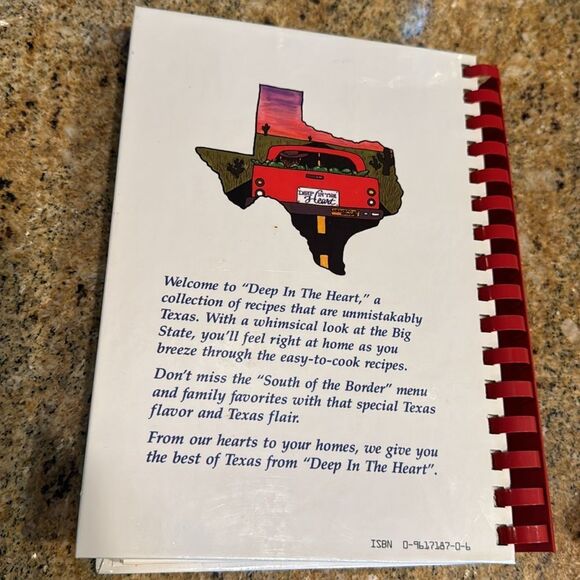 DEEP IN THE
Heart
Welcome to "Deep In The Heart," a
collection of recipes that are unmistakably
Texas. With a whimsical look at the Big
State, you'll feel right at home as you
breeze through the easy-to-cook recipes.
Don't miss the "South of the Border" menu
and family favorites with that special Texas
flavor and Texas flair.
From our hearts to your homes, we give you
the best of Texas from "Deep In The Heart".
ISBN 0-9617187-0-6